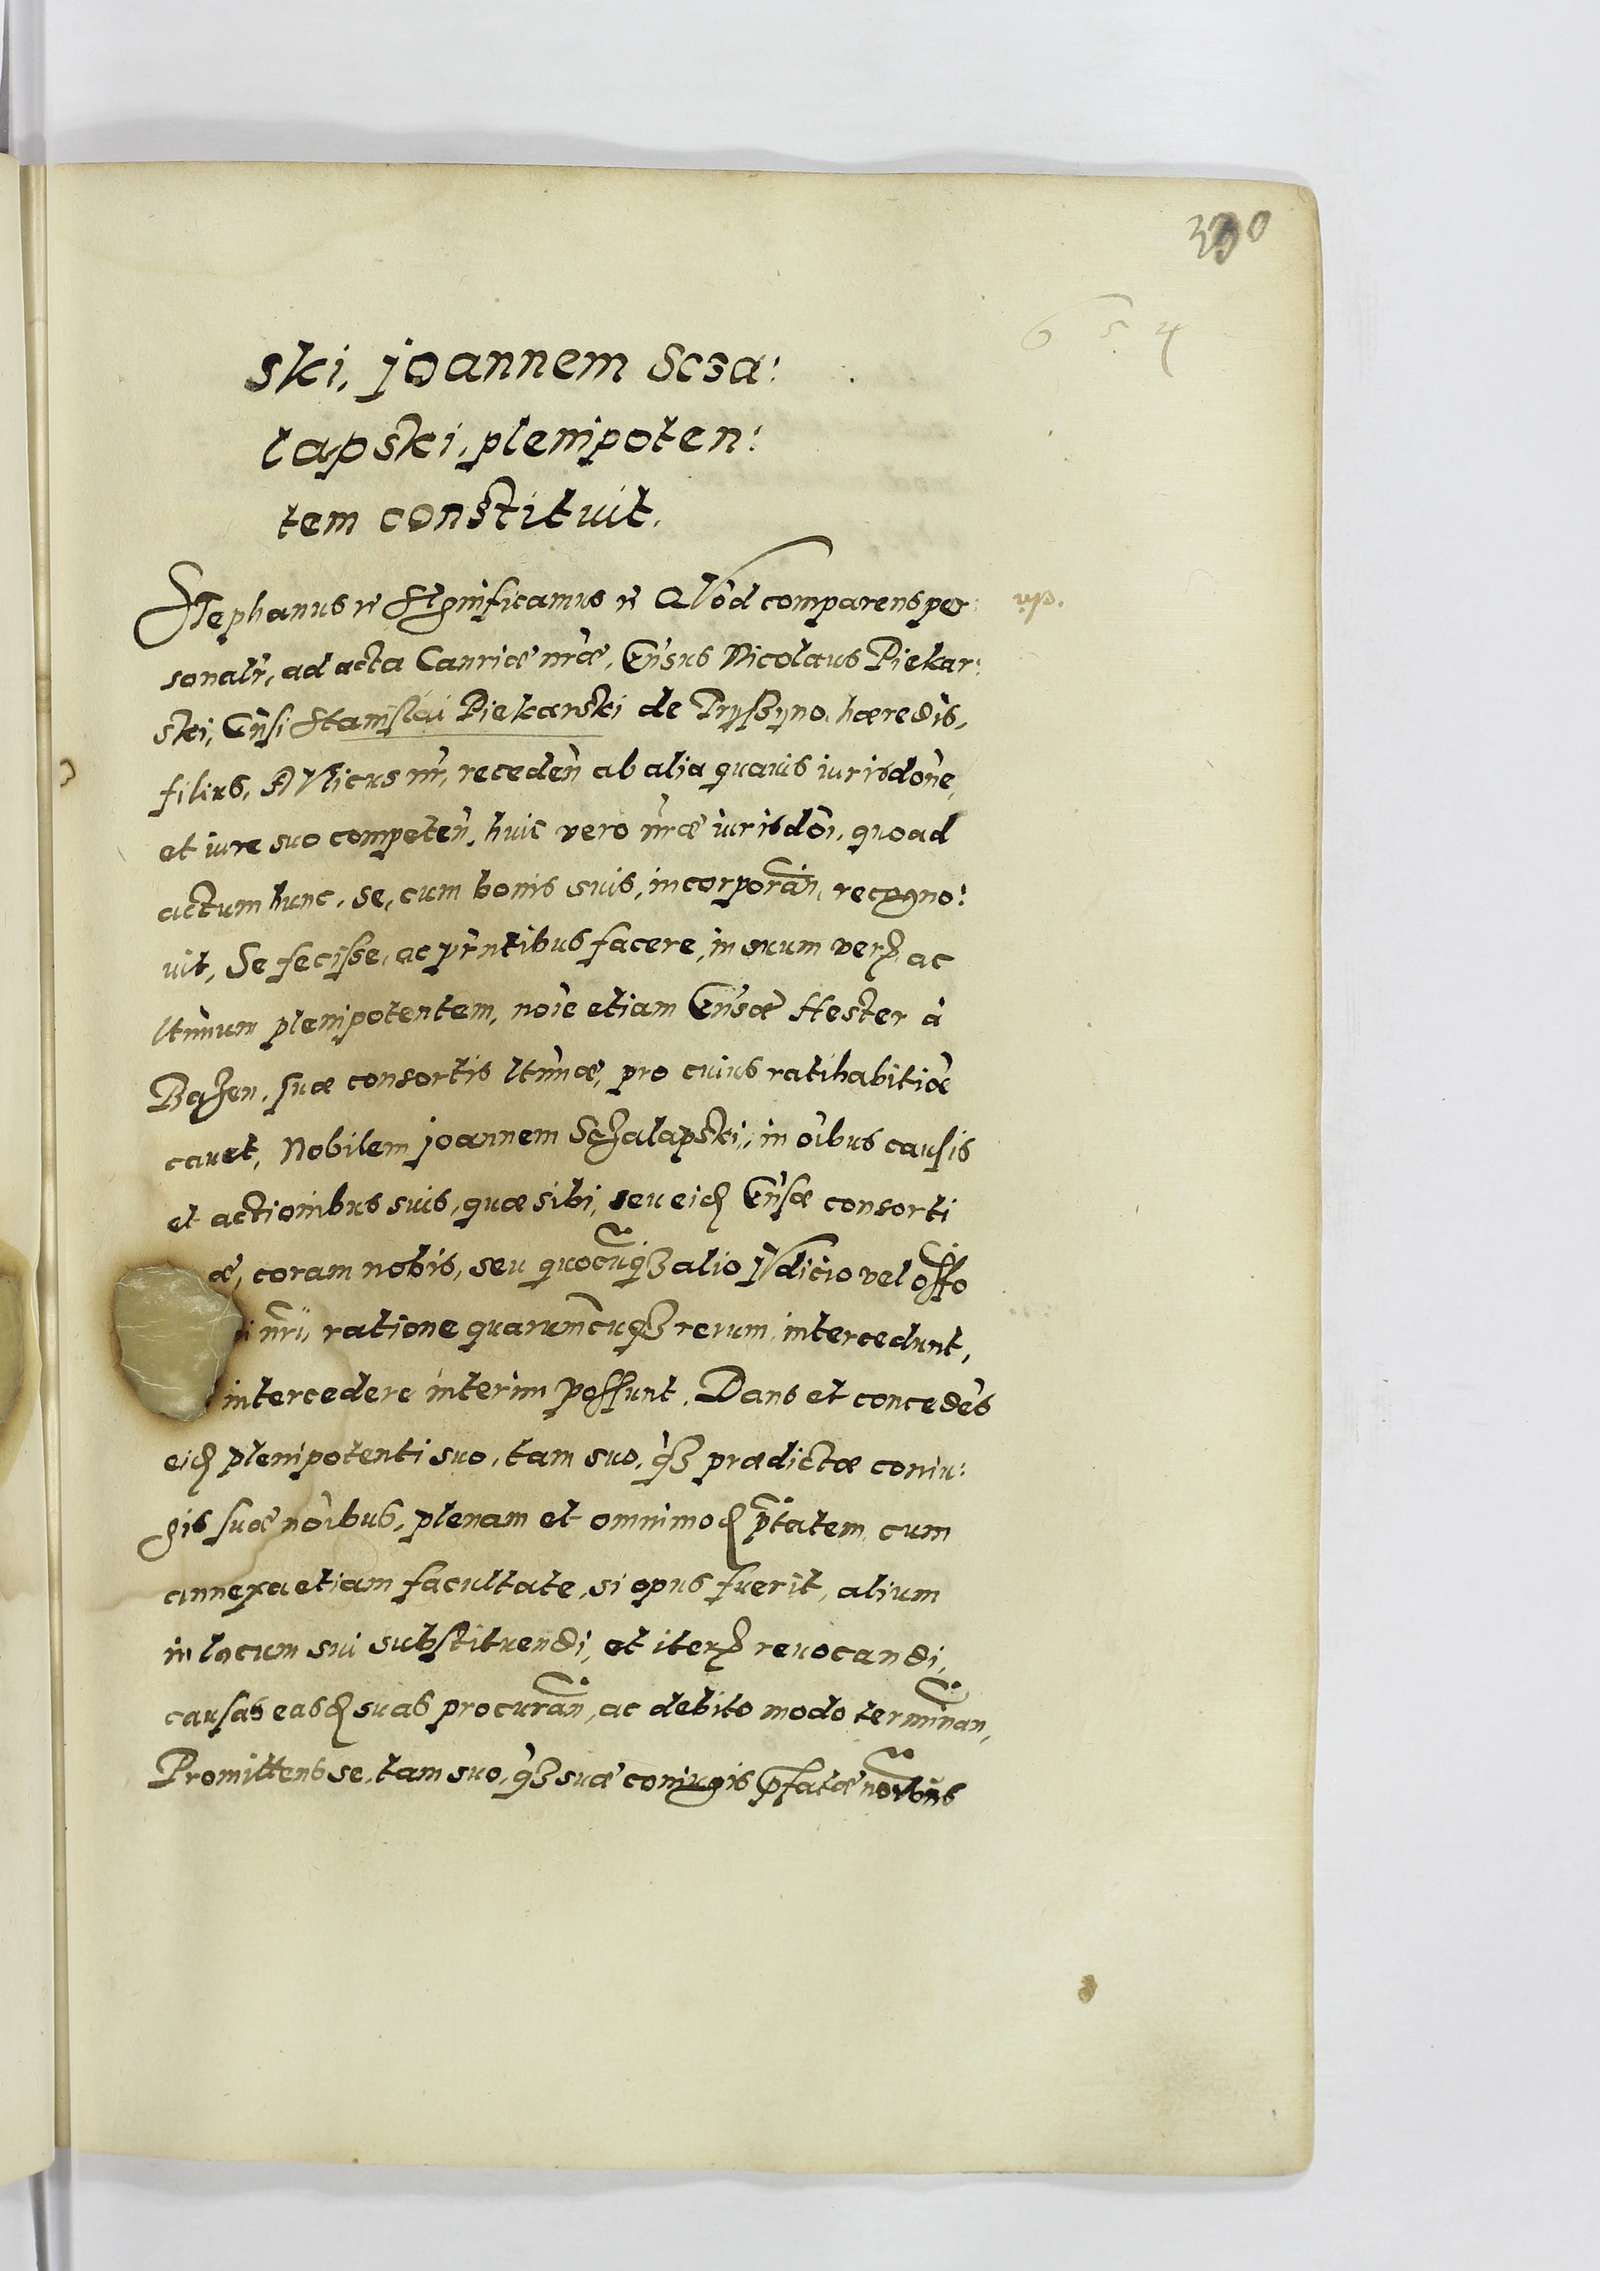 330
ski, joannem Scza:
lapski, plenipoten:
tem constituit.
Stephanus &c Significamus &c Quòd comparens per:
sonalr̃, ad acta Canriæ nr̃æ, Gñsus Nicolaus Piekar:
ski, Gñsi Stanislai Piekarski de Tryszyno, hæredis,
filius, Aulicus nr̃, recedeñ ab alia quauis iurisdõne,
et iure suo competeñ, huic vero nr̃æ iurisdõi, quoad
actum hunc, se, cum bonis suis, incorporañ, recogno:
uit, Se fecisse, ac pñtibus facere, in suum verꝝ ac
ltimum plenipotentem, noĩe etiam Gñsæ Hester à
Bazen, suæ consortis ltimæ, pro cuius ratihabitiõe
cauet, Nobilem joannem Sczalapski, in oĩbus causis
et actionibus suis, quæ sibi, seu eid Gñsæ consorti
æ, coram nobis, seu quocũqꝫ alio judicio vel offo
nr̃i, ratione quarumcũqꝫ rerum, intercedunt,
intercedere interim possunt. Dans et concedẽs
eid plenipotenti suo, tam suo, qꝫ prædictæ coniu:
gis suæ noĩbus, plenam et omnimod ptatem, cum
annexa etiam facultate, si opus fuerit, alium
in locum sui substituendi, et iterꝝ reuocandi,
causas easd suas procurañ, ac debito modo terminañ,
Promittens se, tam suo, qꝫ suæ coniugis pfatæ noĩbus